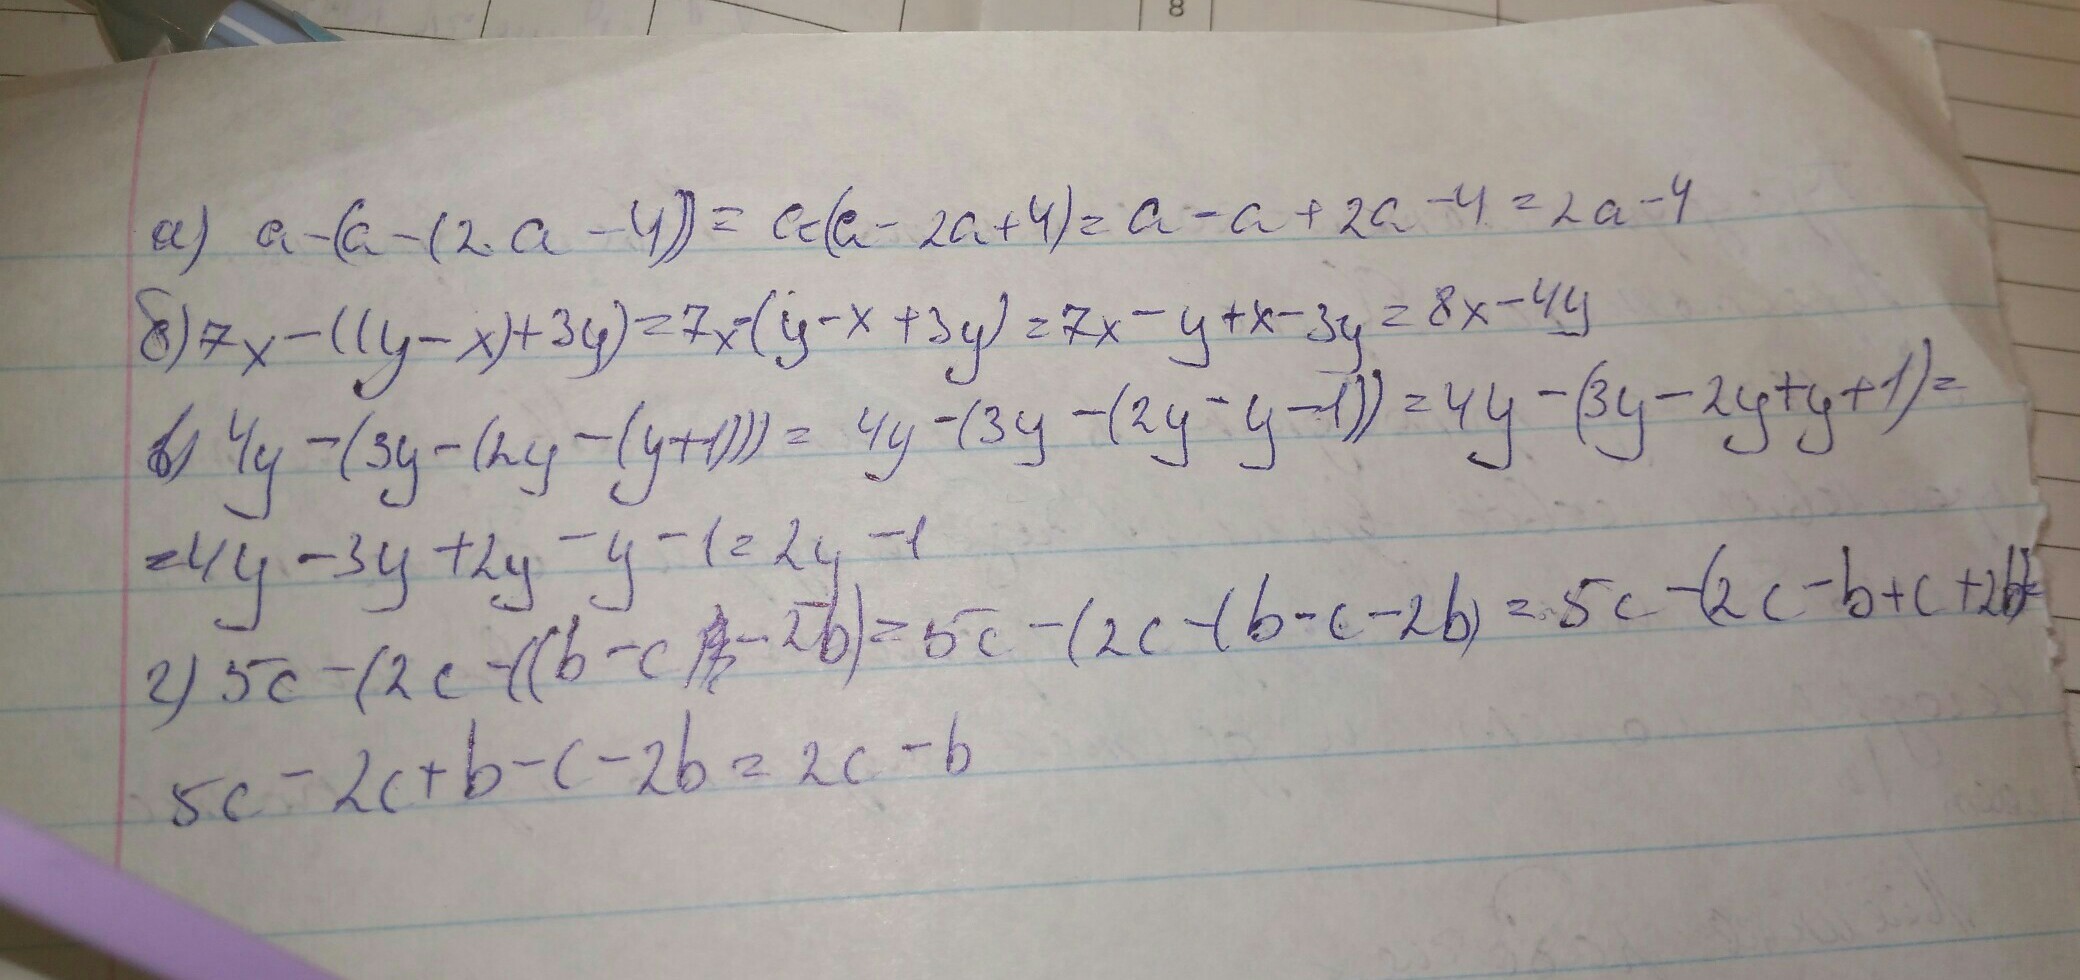 8
а) a-(a-(2a-4))= a-(a-2a+4)= a-a+2a-4=2a-4
б) 7x-((y-x)+3y)=7x-(y-x+3y)=7x-y+x-3y=8x-4y
в) 4y-(3y-(2y-(y+1)))= 4y-(3y-(2y-y-1))=4y-(3y-2y+y+1)=
=4y-3y+2y-y-1=2y-1
г) 5c-(2c-((b-c)-2b)=5c-(2c-(b-c-2b)=5c-(2c-b+c+2b)=
5c-2c+b-c-2b=2c-b